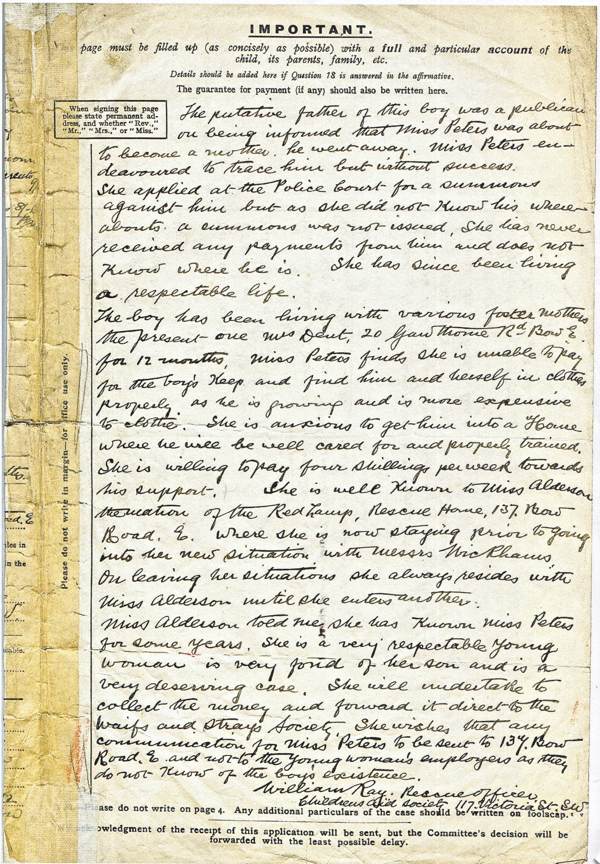 IMPORTANT.
page must be filled up (as concisely as possible) with a full and particular account of the
child, its parents, family, etc.
Details should be added here if Question 18 is answered in the affirmative.
The guarantee for payment (if any) should also be written here.
When signing this page
please state permanent ad-
dress, and whether "Rev.,"
"Mr.," "Mrs.," or "Miss."
The putative father of this boy was a publican
on being informed that Miss Peters was about
to become a mother. he went away. Miss Peters en-
deavoured to trace him but without success.
She applied at the Police Court for a summons
against him but as she did not know his where-
abouts a summons was not issued, She has never
received any payments from him and does not
know where he is. She has since been living
a respectable life.
The boy has been living with various foster mothers
the present one Mrs Dent, 20 Gawthorne Rd Bow E.
for 12 months, Miss Peters finds she is unable to pay
for the boy's keep and find him and herself in clothes
properly. as he is growing and is more expensive
to clothe. She is anxious to get him into a Home
where he will be well cared for and properly trained.
She is willing to pay four shillings per week towards
his support. She is well known to Miss Alderson
the matron of the Red Lamp, Rescue Home, 137. Bow
Road. E. where she is now staying prior to going
into her new situation with Messrs Wickhams
On leaving her situations she always resides with
Miss Alderson until she enters another.
Miss Alderson told me she has known Miss Peters
for some years. She is a very respectable young
woman is very fond of her son and is a
very deserving case. She will undertake to
collect the money and forward it direct to the
Waifs and Strays Society. She wishes that any
communication for Miss Peters to be sent to 137. Bow
Road, E. and not to the young woman's employers as they
do not know of the boys existence.
William Kay. Rescue Officer
Childrens Aid Society 117. Victoria St. S.W
Please do not write in margin—for office use only.
Please do not write on page 4. Any additional particulars of the case should be written on foolscap.
acknowledgment of the receipt of this application will be sent, but the Committee's decision will be
forwarded with the least possible delay.